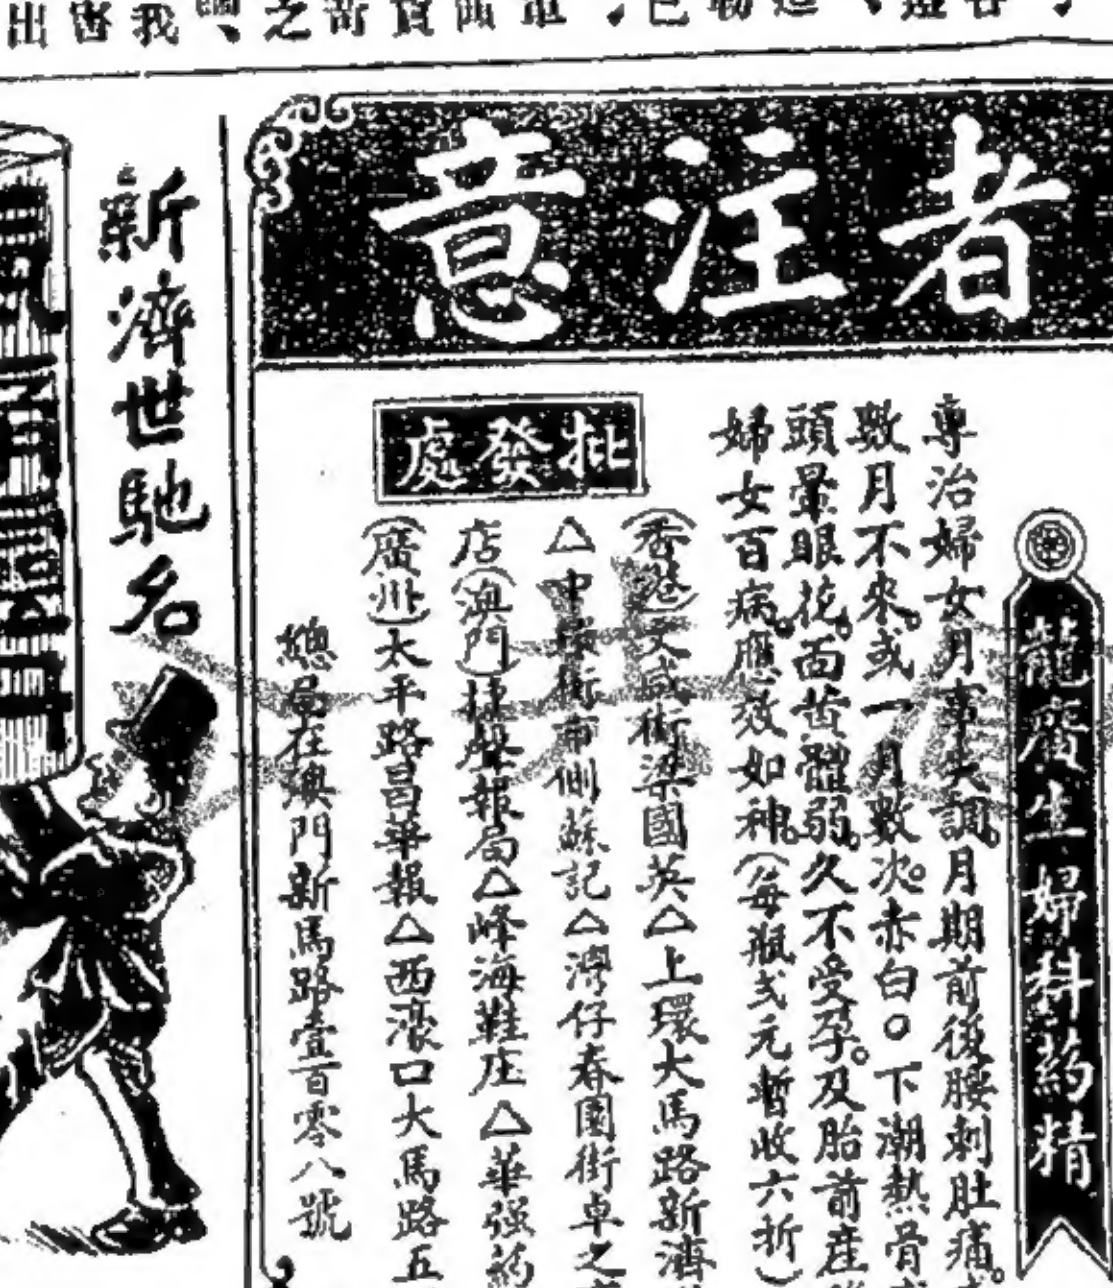 者注意
龍齋生婦科葯精
專治婦女月事失調。月期前後腰刺肚痛。
數月不來。或一月數次。赤白○下潮熱骨
頭暈眼花。面黃體弱。久不受孕。及胎前產
婦女百病。應效如神。(每瓶弍元暫收六折)
批發處
(香港)文咸街梁國英△上環大馬路新濟
△中環街市側蘇記△灣仔春園街卓之
店(澳門)捷聲報局△峰海鞋庄△華强葯
(廣州)太平路昌華報△西濠口大馬路五
總局在澳門新馬路壹百零八號
新濟世馳名